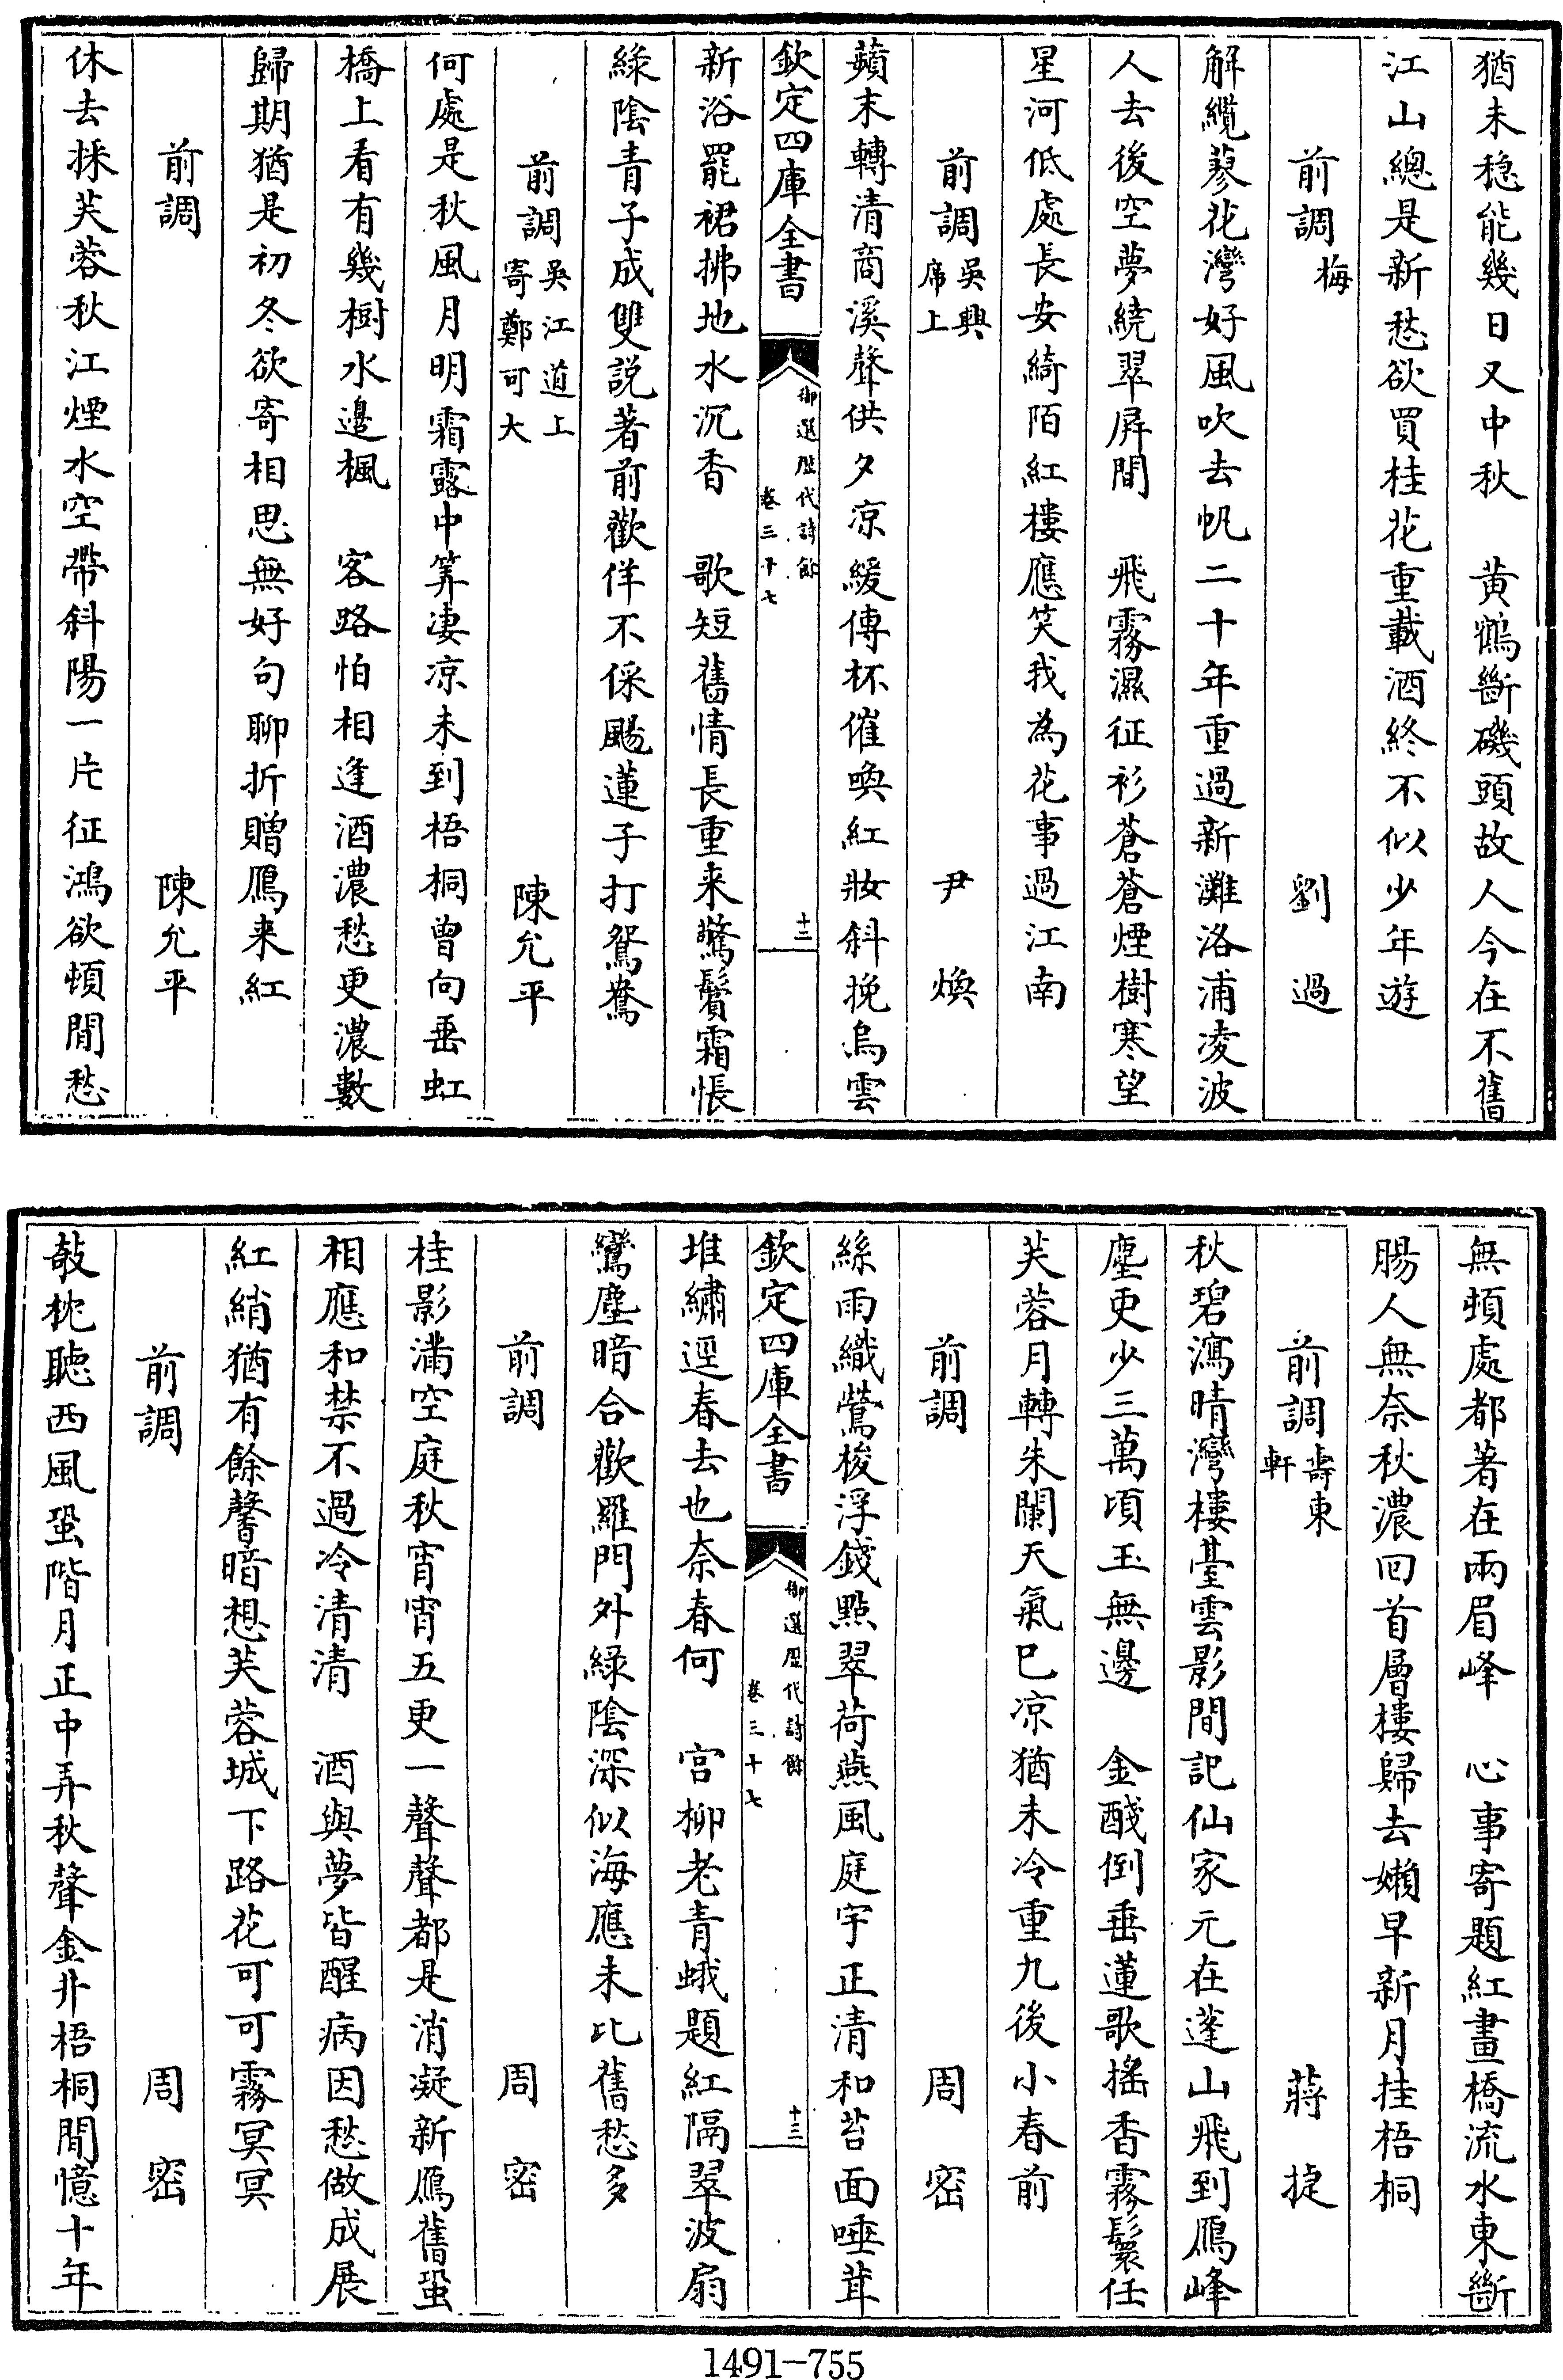 猶未穩能幾日又中秋　黄鶴斷磯頭故人今在不舊
江山總是新愁欲買桂花重載酒終不似少年遊
前調梅　劉過
解纜蓼花灣好風吹去帆二十年重過新灘洛浦凌波
人去後空夢繞翠屏間　飛霧濕征衫蒼蒼煙樹寒望
星河低處長安綺陌紅樓應笑我為花事過江南
前調吳興席上　尹煥
蘋末轉清商溪聲供夕凉緩傳杯催喚紅妝斜挽烏雲
欽定四庫全書　御選歷代詩餘卷三十七　十二
新浴罷裙拂地水沉香　歌短舊情長重来驚鬢霜悵
綠陰青子成雙説著前歡佯不倸颺蓮子打鴛鴦
前調吳江道上寄鄭可大　陳允平
何處是秋風月明霜露中筭凄凉未到梧桐曾向垂虹
橋上看有幾樹水邊楓　客路怕相逢酒濃愁更濃數
歸期猶是初冬欲寄相思無好句聊折贈鴈来紅
前調　陳允平
休去採芙蓉秋江煙水空帶斜陽一片征鴻欲頓閒愁
無頓處都著在兩眉峰　心事寄題紅畫橋流水東斷
腸人無奈秋濃回首層樓歸去嬾早新月挂梧桐
前調壽東軒　蔣捷
秋碧瀉晴灣樓臺雲影間記仙家元在蓬山飛到鴈峰
塵更少三萬頃玉無邊　金醆倒垂蓮歌搖香霧鬟任
芙蓉月轉朱闌天氣已凉猶未冷重九後小春前
前調　周密
絲雨織鶯梭浮錢點翠荷燕風庭宇正清和苔面唾茸
欽定四庫全書　御選歷代詩餘卷三十七　十三
堆繡逕春去也奈春何　宫柳老青蛾題紅隔翠波扇
鸞塵暗合歡羅門外綠陰深似海應未比舊愁多
前調　周密
桂影滿空庭秋宵宵五更一聲聲都是消凝新鴈舊蛩
相應和禁不過冷清清　酒與夢皆醒病因愁做成展
紅綃猶有餘馨暗想芙蓉城下路花可可霧冥冥
前調　周密
敧枕聽西風蛩階月正中弄秋聲金井梧桐閒憶十年
1491-755